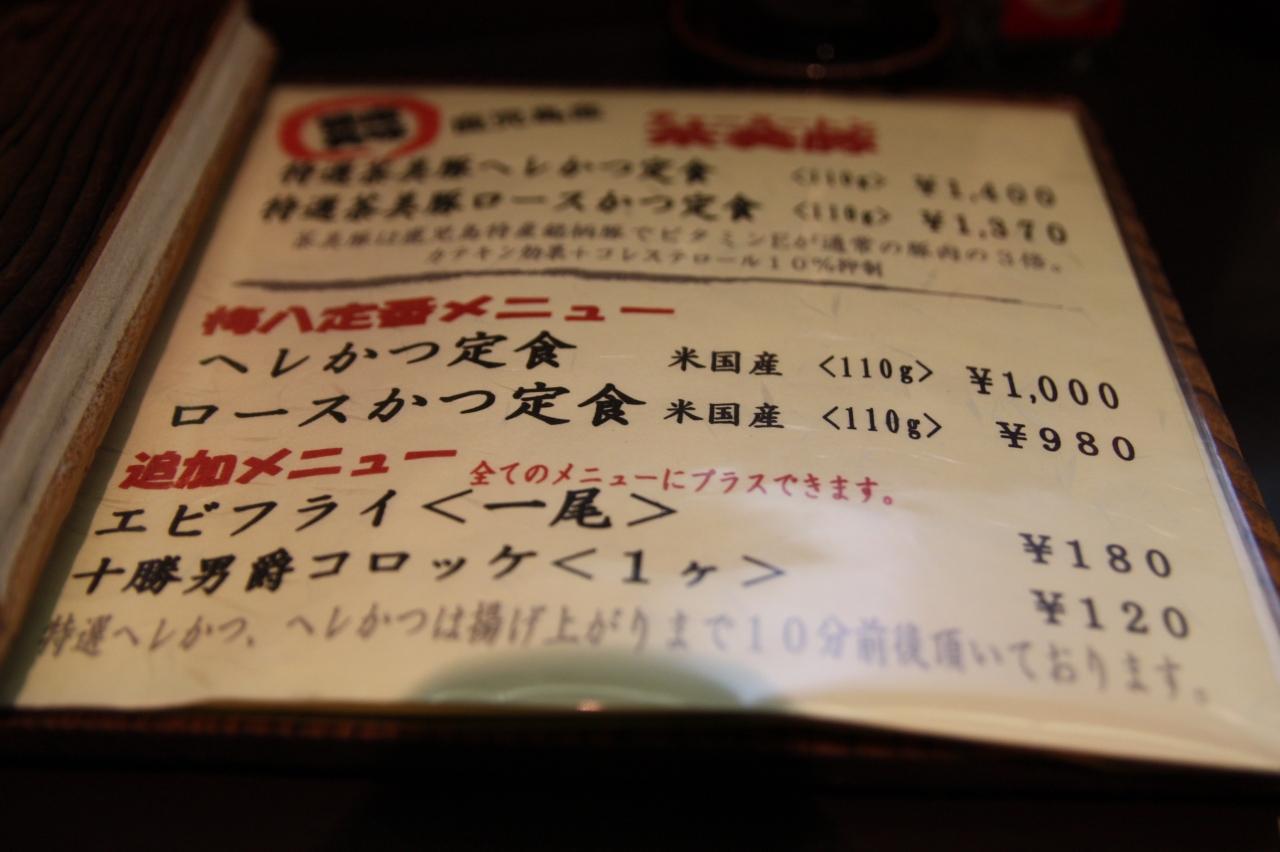 鹿児島産 茶美豚
特選茶美豚ヘレかつ定食 <110g> ¥1,400
特選茶美豚ロースかつ定食 <110g> ¥1,370
茶美豚は鹿児島特産銘柄豚でビタミンEが通常の豚肉の3倍。
カテキン効果+コレステロール10%抑制
梅八定番メニュー
ヘレかつ定食 米国産 <110g> ¥1,000
ロースかつ定食 米国産 <110g> ¥980
追加メニュー 全てのメニューにプラスできます。
エビフライ<一尾> ¥180
十勝男爵コロッケ<1ヶ> ¥120
特選ヘレかつ、ヘレかつは揚げ上がりまで10分前後頂いております。